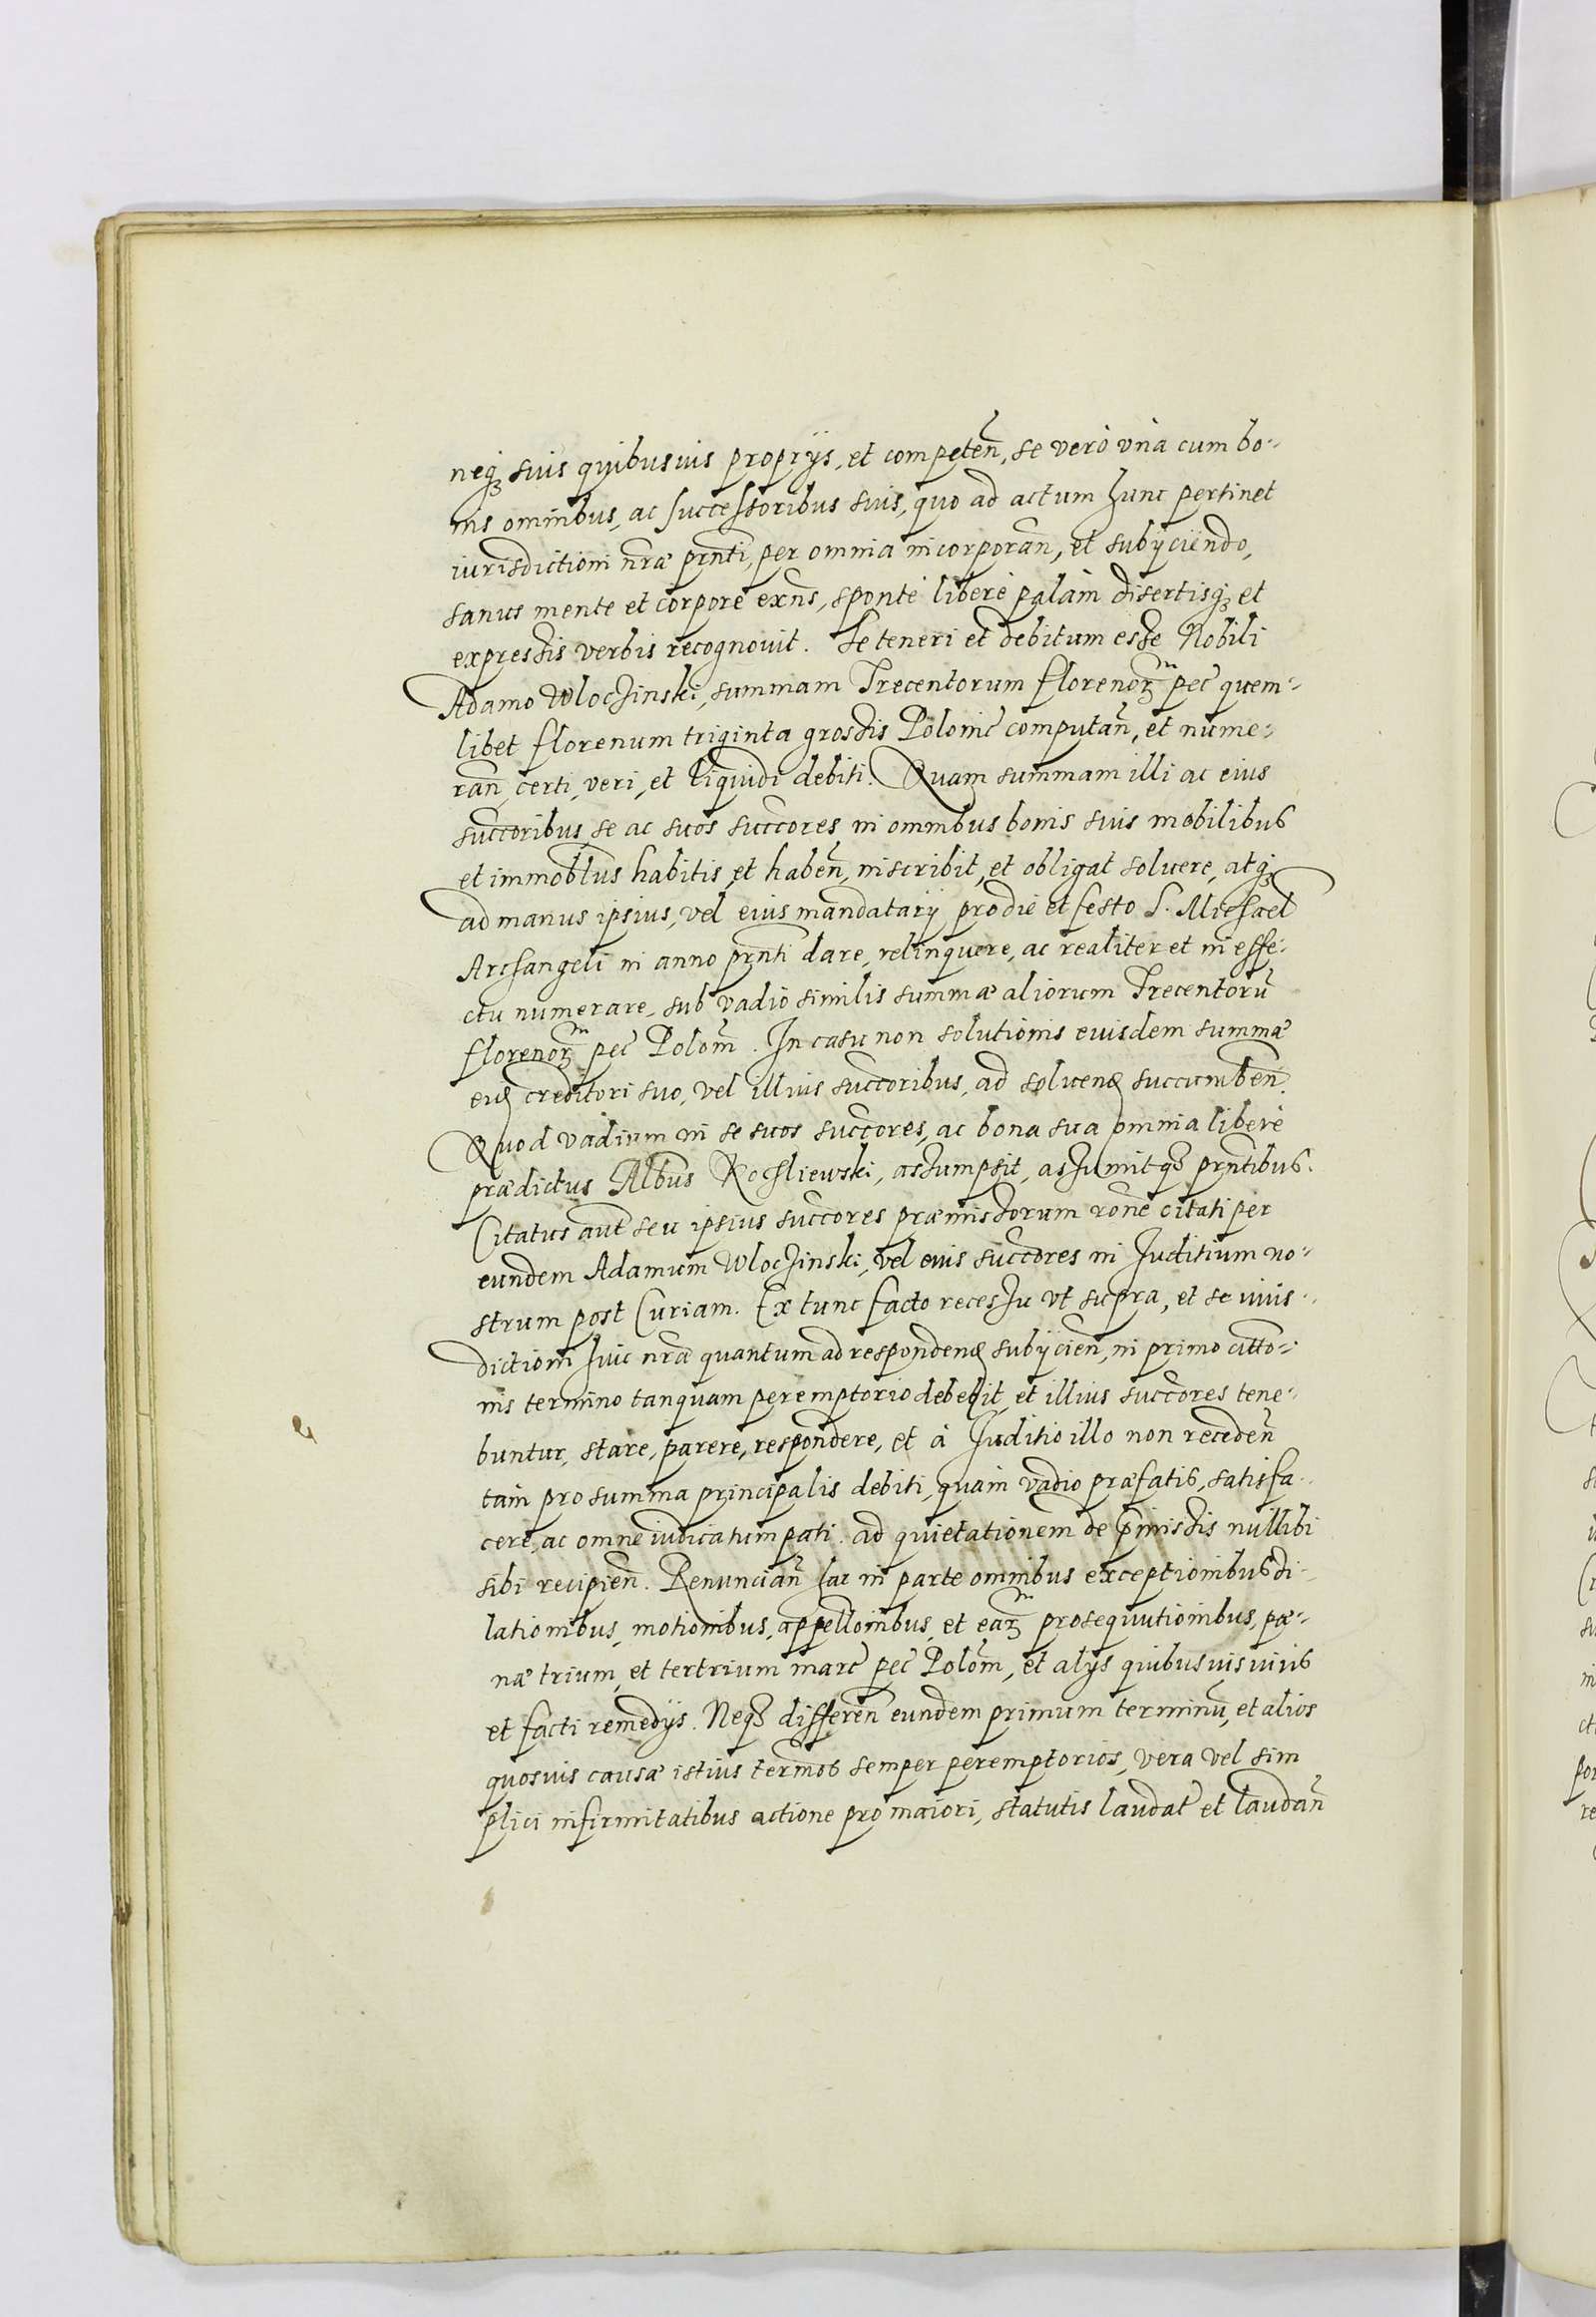 neq₃ suis quibusuis proprijs, et competeñ, se verò vnà cum bo⸗
nis omnibus, ac successoribus suis, quo ad actum hunc pertinet
iurisdictioni nr̃æ prñti, per omnia incorporañ, et subijciendo,
sanus mente et corpore exñs, sponte liberè palàm disertisq₃ et
expressis verbis recognouit. Se teneri et debitum esse Nobili
Adamo Wloczinski, summam Trecentorum florenoꝝ pec̃ quem⸗
libet florenum triginta grossis Polonic̃ computañ, et nume⸗
rañ, certi, veri, et liquidi debiti. Quam summam illi ac eius
succ̃oribus se ac suos succ̃ores in omnibus bonis suis mobilibus
et immobl̃us habitis, et habeñ, inscribit, et obligat soluere, atq₃
ad manus ipsius, vel eius mandatarij pro die et festo S. Michael
Archangeli in anno prñti dare, relinquere, ac realiter et in effe⸗
ctu numerare, sub vadio similis summæ aliorum Trecentorũ
florenoꝝ pec̃ Polom̃. In casu non solutionis eiusdem summæ
eid̃ creditori suo, vel illius succ̃oribus, ad soluend̃ succumbeñ.
Quod vadium in se suos succ̃ores, ac bona sua omnia liberè
prædictus Alb̃us Kochliewski, assumpsit, assumitq₃ prñtibus.
Citatus aut̃ seu ipsius succ̃ores præmissorum rõne citati per
eundem Adamum Wloczinski, vel eius succ̃ores in Juditium no⸗
strum post Curiam. Ex tunc facto recessu vt supra, et se iuris⸗
dictioni huic nr̃æ quantum ad respondend̃ subijcieñ, in primo citt̃o⸗
nis termino tanquam peremptorio debebit, et illius succ̃ores tene⸗
buntur, stare, parere, respondere, et à Juditio illo non recedeñ
tam pro summa principalis debiti, quàm vadio præfatis, satisfa⸗
cere, ac omne iudicatum pati. ad quietationem de p̃missis nullibi
sibi recipieñ. Renunciañ hac in parte omnibus exceptionibus di⸗
lationibus, motionibus, appellõnibus, et eaꝝ prosequutionibus, pæ⸗
næ trium, et ter trium marc̃ pec̃ Polom̃, et alijs quibusuis iuris
et facti remedijs. Neq₃ differeñ eundem primum terminũ, et alios
quosuis causæ istius term̃os semper peremptorios, vera vel sim
plici infirmitatibus actione pro maiori, statutis laudat̃ et laudañ